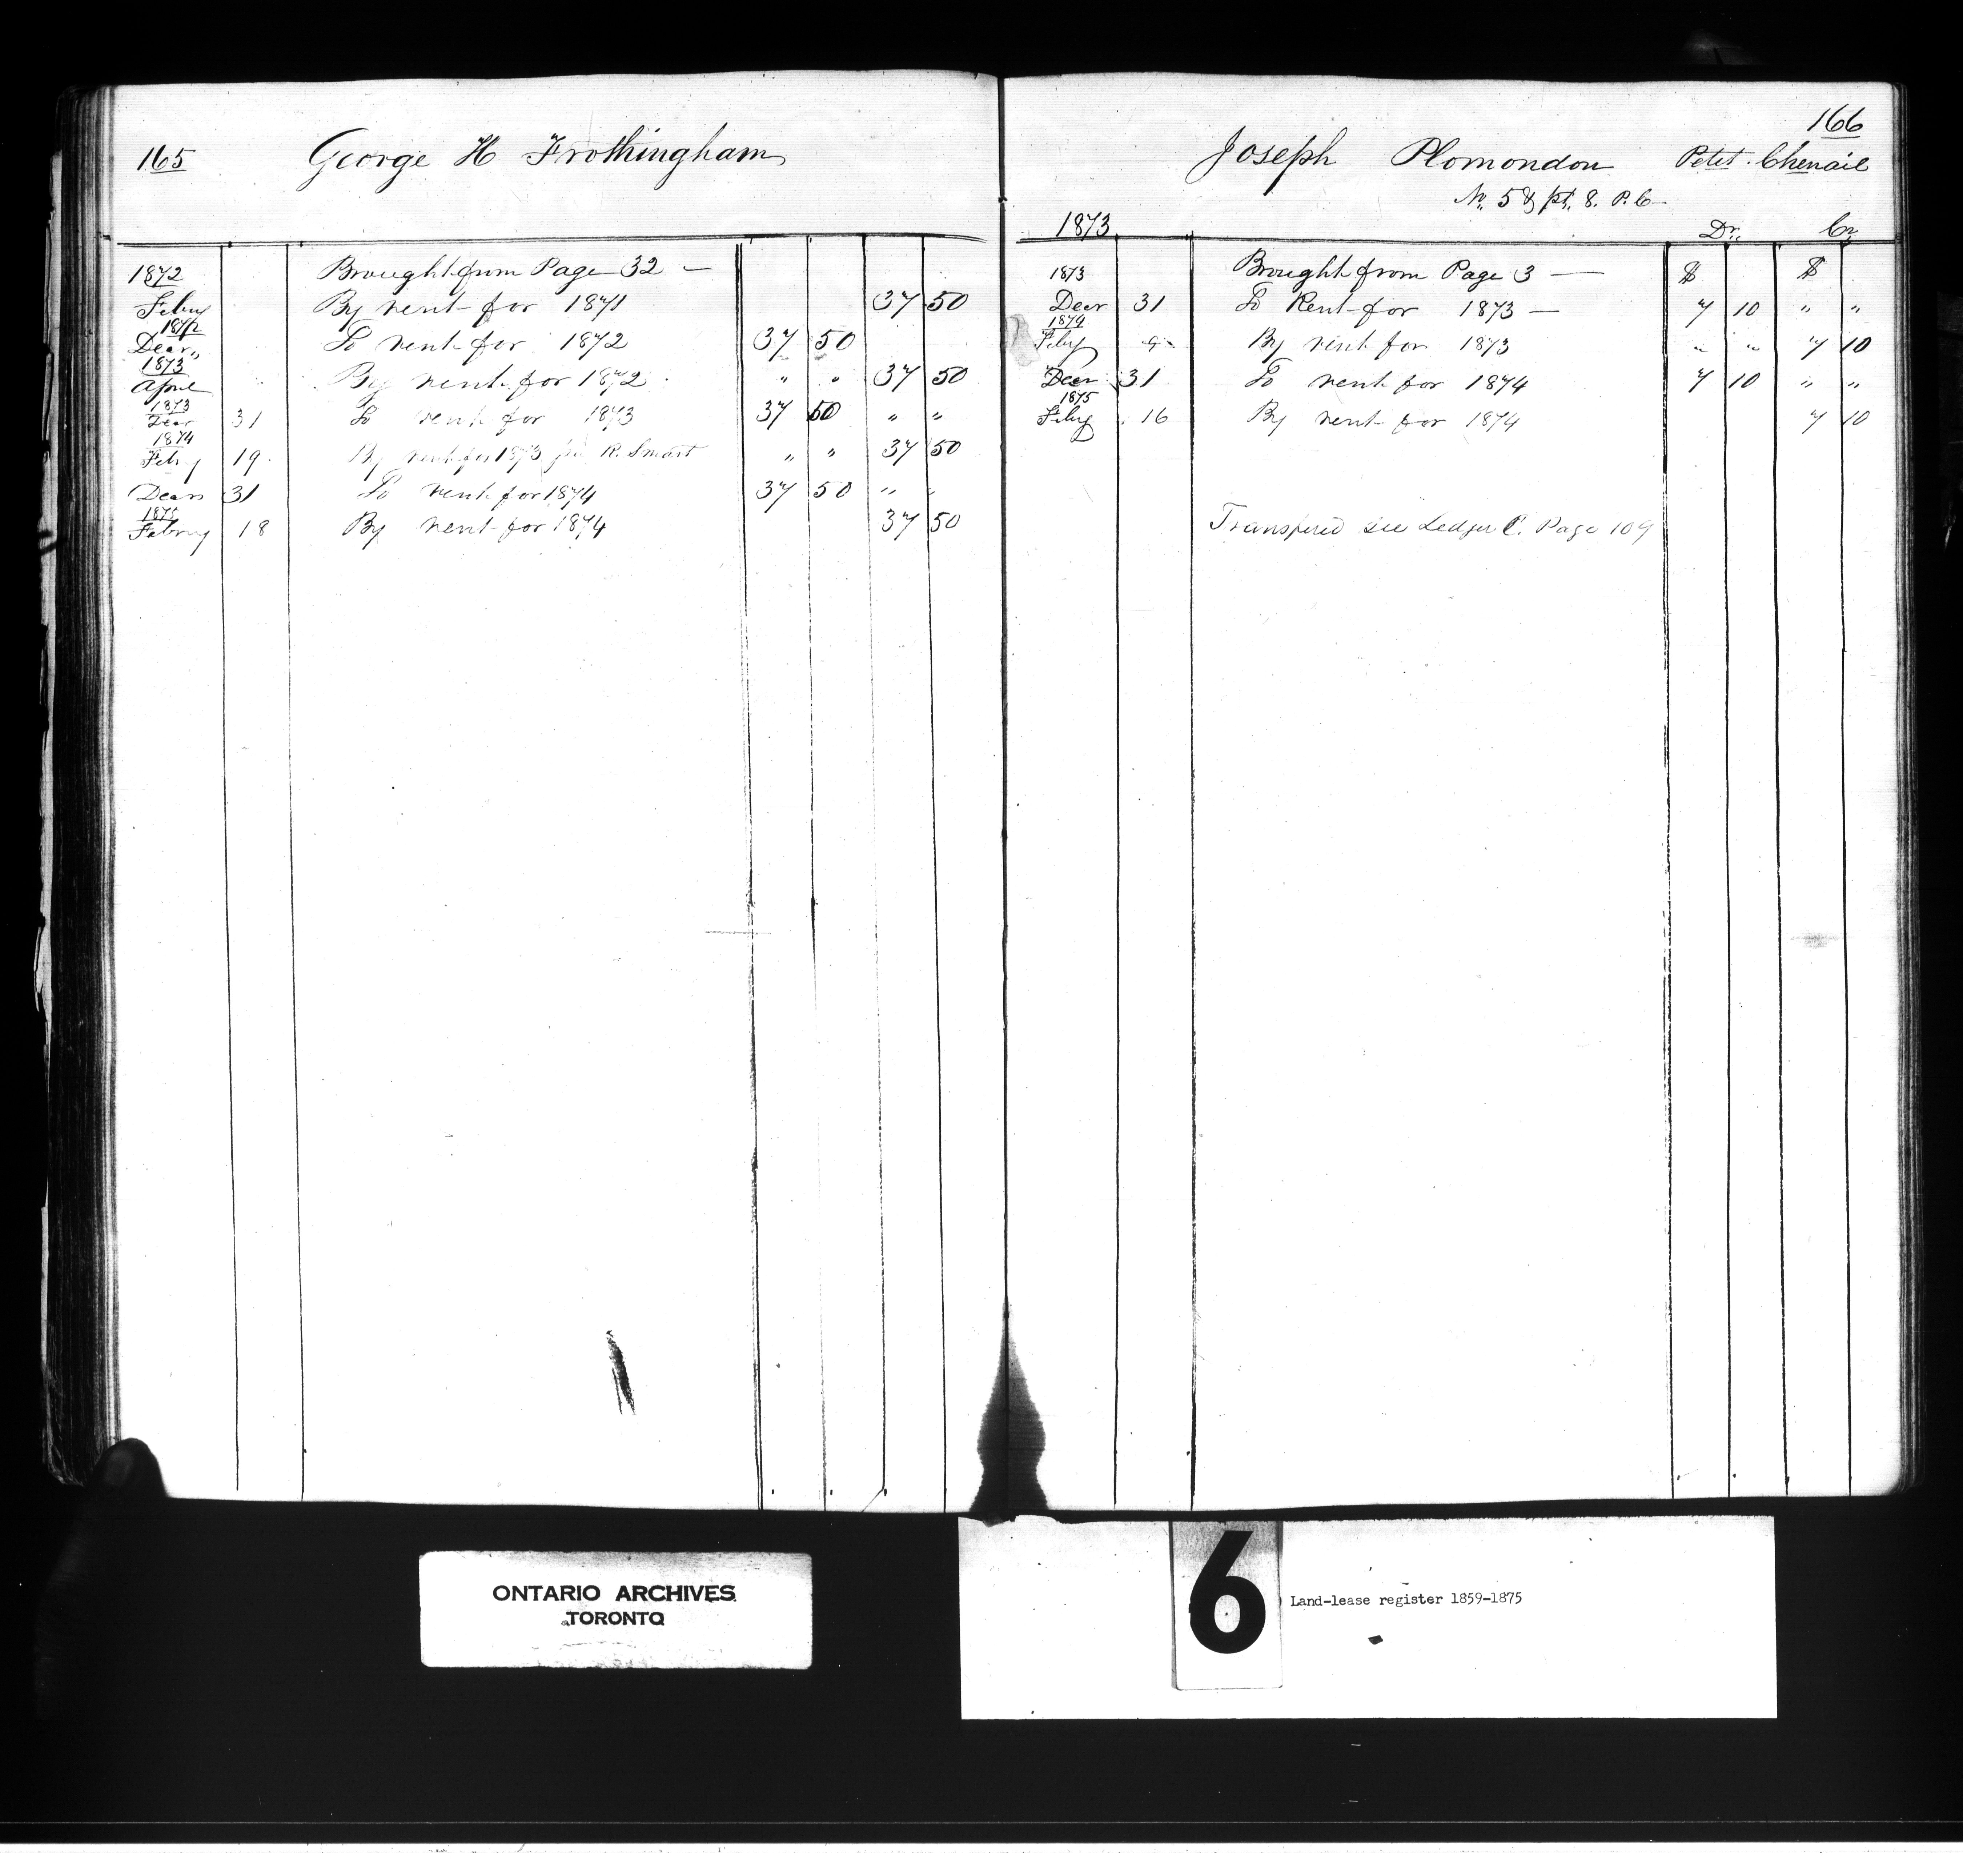 165 George H Frothingham
1872 Brought from Page 32 —
Feby By rent for 1871 37 50
1872
Decr,, To rent for 1872 37 50
1873
April By rent for 1872 " " 37 50
1873
Decr 31 To rent for 1873 37 50 " "
1874
Feby 19 By rent for 1873 per R. Smart " " 37 50
Decr 31 To rent for 1874 37 50 " "
1875
Febry 18 By rent for 1874 37 50
166
Joseph Plomondon Petit Chenail
No. 5 & pt. 8. P. C—
1873 Dr. Cr
1873 Brought from Page 3 — $ $
Decr 31 To Rent for 1873 — 7 10 " "
1874
Feby 9 By rent for 1873 " " 7 10
Decr 31 To rent for 1874 7 10 " "
1875
Feby 16 By rent for 1874 7 10
Transfered see Ledger C. Page 109
ONTARIO ARCHIVES
TORONTO
6
Land-lease register 1859-1875